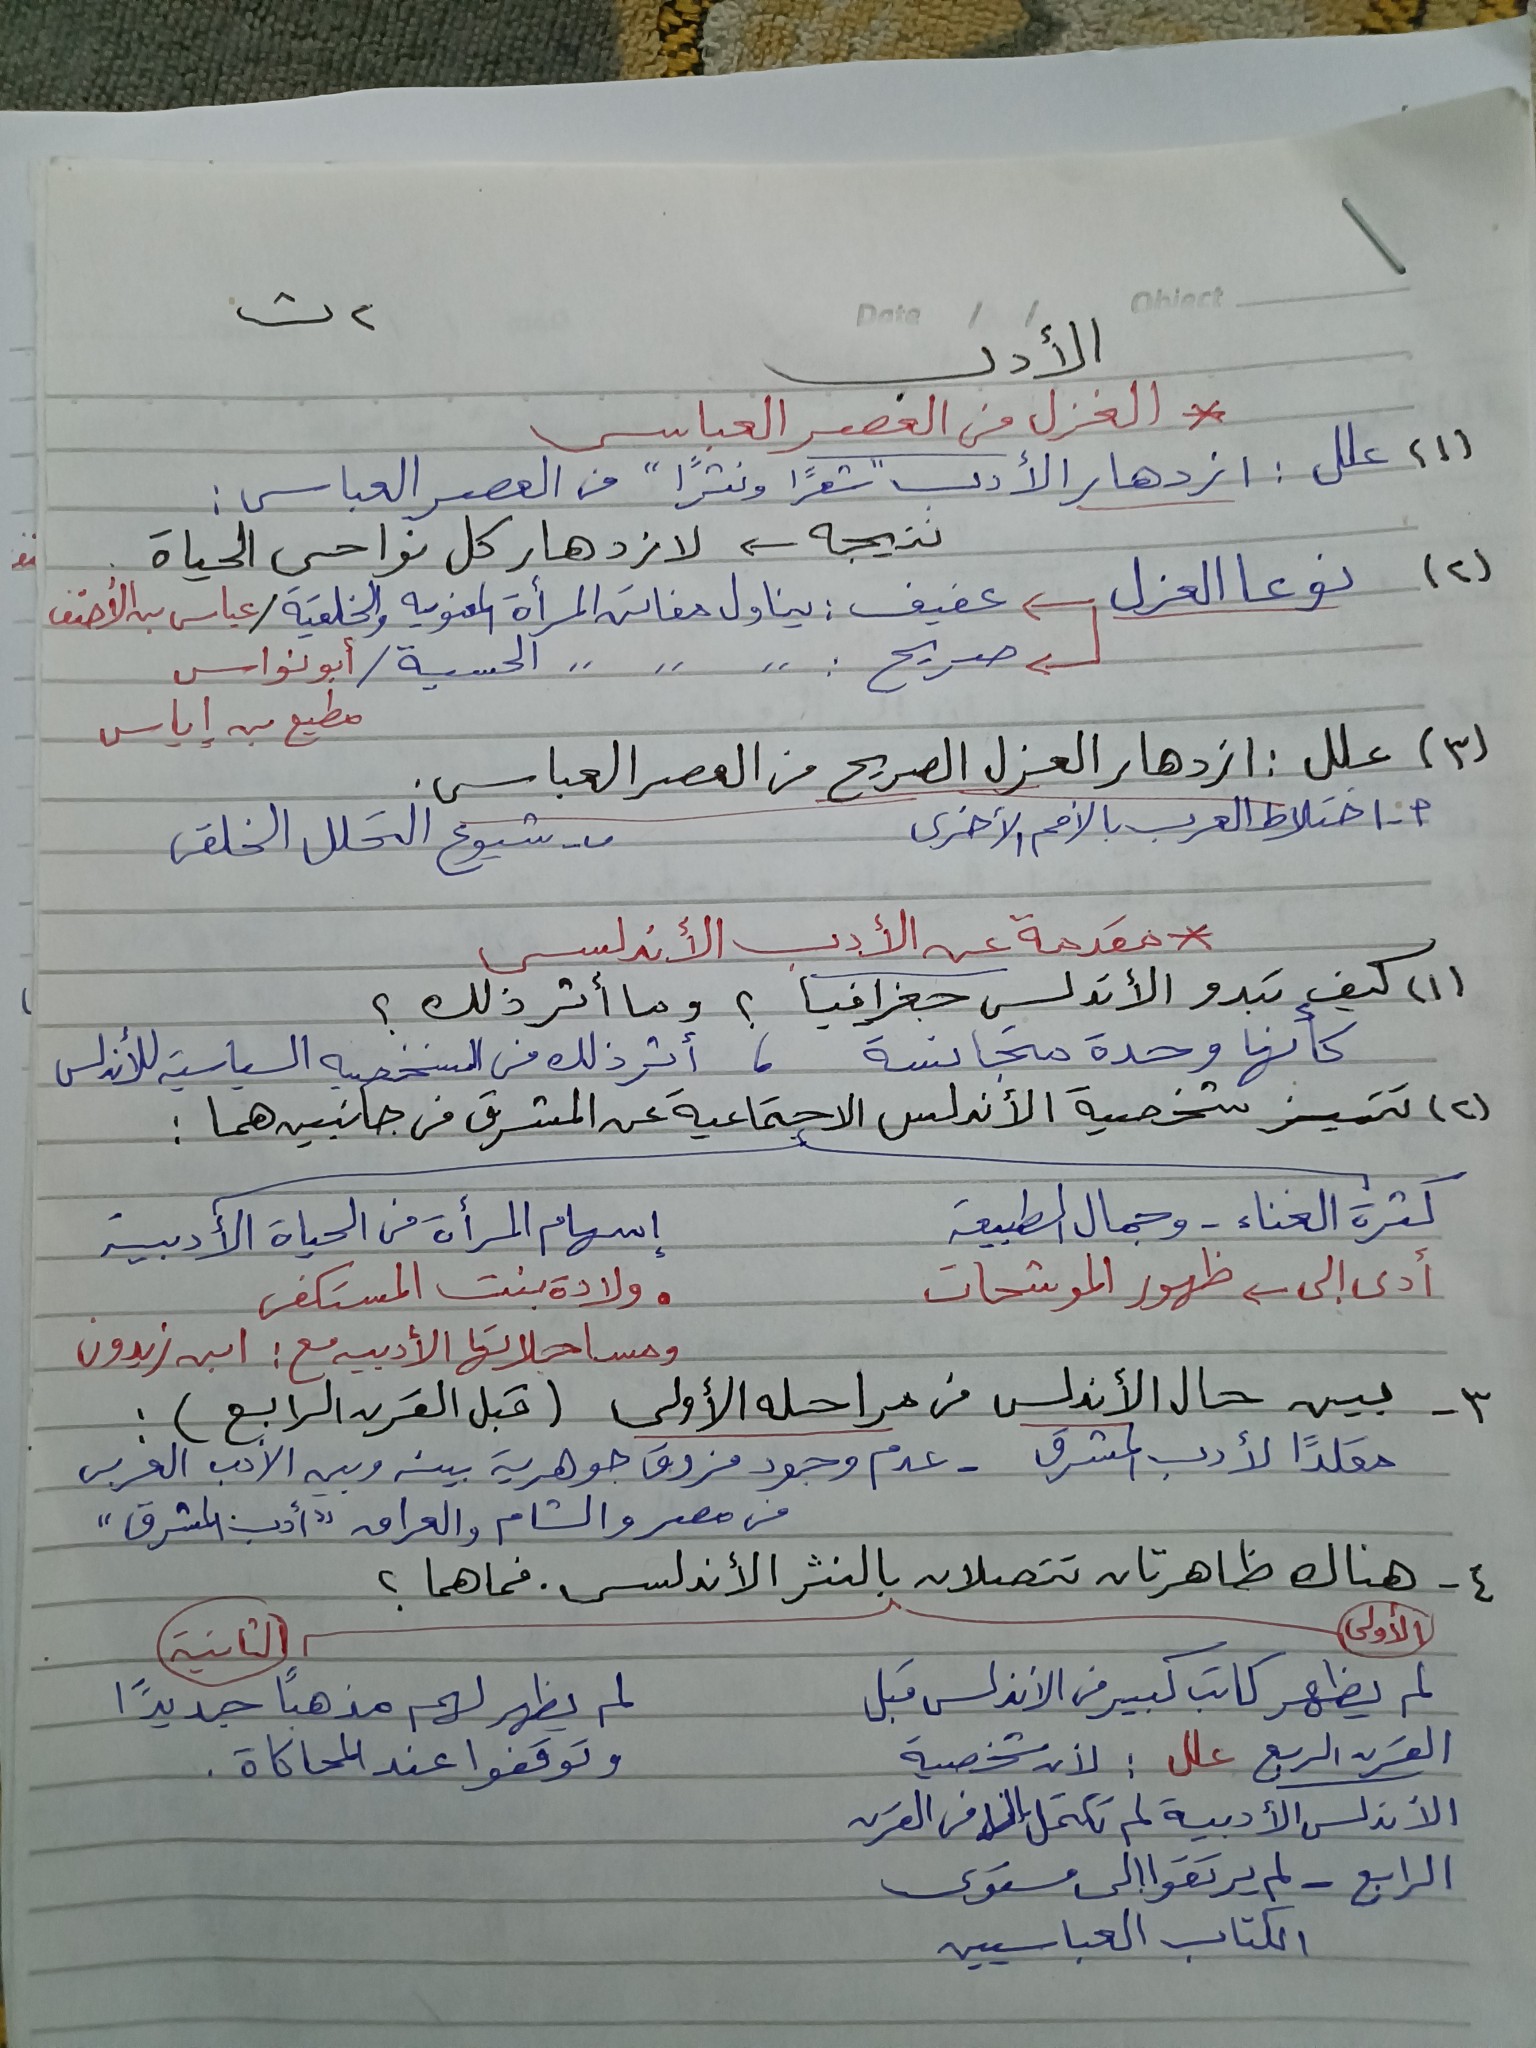 ٢ ث
Date / / Object
الأدب
* الغزل فى العصر العباسى
(١) علل : ازدهار الأدب "شعرًا ونثرًا" فى العصر العباسى :
نتيجه ← لازدهار كل نواحى الحياة .
(٢) نوعا الغزل ← عفيف : يناول مفاتن المرأة المعنويه والخلقية / عباس بن الأحنف
← صريح : ,, ,, ,, الحسية / أبو نواس
مطيع بن إياس
(٣) علل : ازدهار الغزل الصريح فى العصر العباسى .
أ- اختلاط العرب بالأمم الأخرى ب- شيوع التحلل الخلقى
* مقدمة عن الأدب الأندلسى
(١) كيف تبدو الأندلس جغرافيا ؟ وما أثر ذلك ؟
كأنها وحدة متجانسة ، أثر ذلك فى الشخصيه السياسية للأندلس
(٢) تتميز شخصية الأندلس الاجتماعية عن المشرق فى جانبين هما :
كثرة الغناء - وجمال الطبيعة إسهام المرأة فى الحياة الأدبية
أدى إلى ← ظهور الموشحات • ولادة بنت المستكفى
ومساجلاتها الأدبيه مع : ابن زيدون
٣- بين حال الأندلس فى مراحله الأولى (قبل القرن الرابع) :
مقلدًا لأدب المشرق - عدم وجود فروق جوهرية بينه وبين الأدب العربى
فى مصر والشام والعراق "أدب المشرق"
٤- هناك ظاهرتان تتصلان بالنثر الأندلسى . فما هما ؟
الأولى الثانية
لم يظهر كاتب كبير فى الأندلس قبل لم يظهر لهم مذهبًا جديدًا
القرن الربع علل : لأن شخصية وتوقفوا عند المحاكاة .
الأندلس الأدبية لم تكتمل فى القرن
الرابع - لم يرتقوا إلى مستوى
الكتاب العباسيين